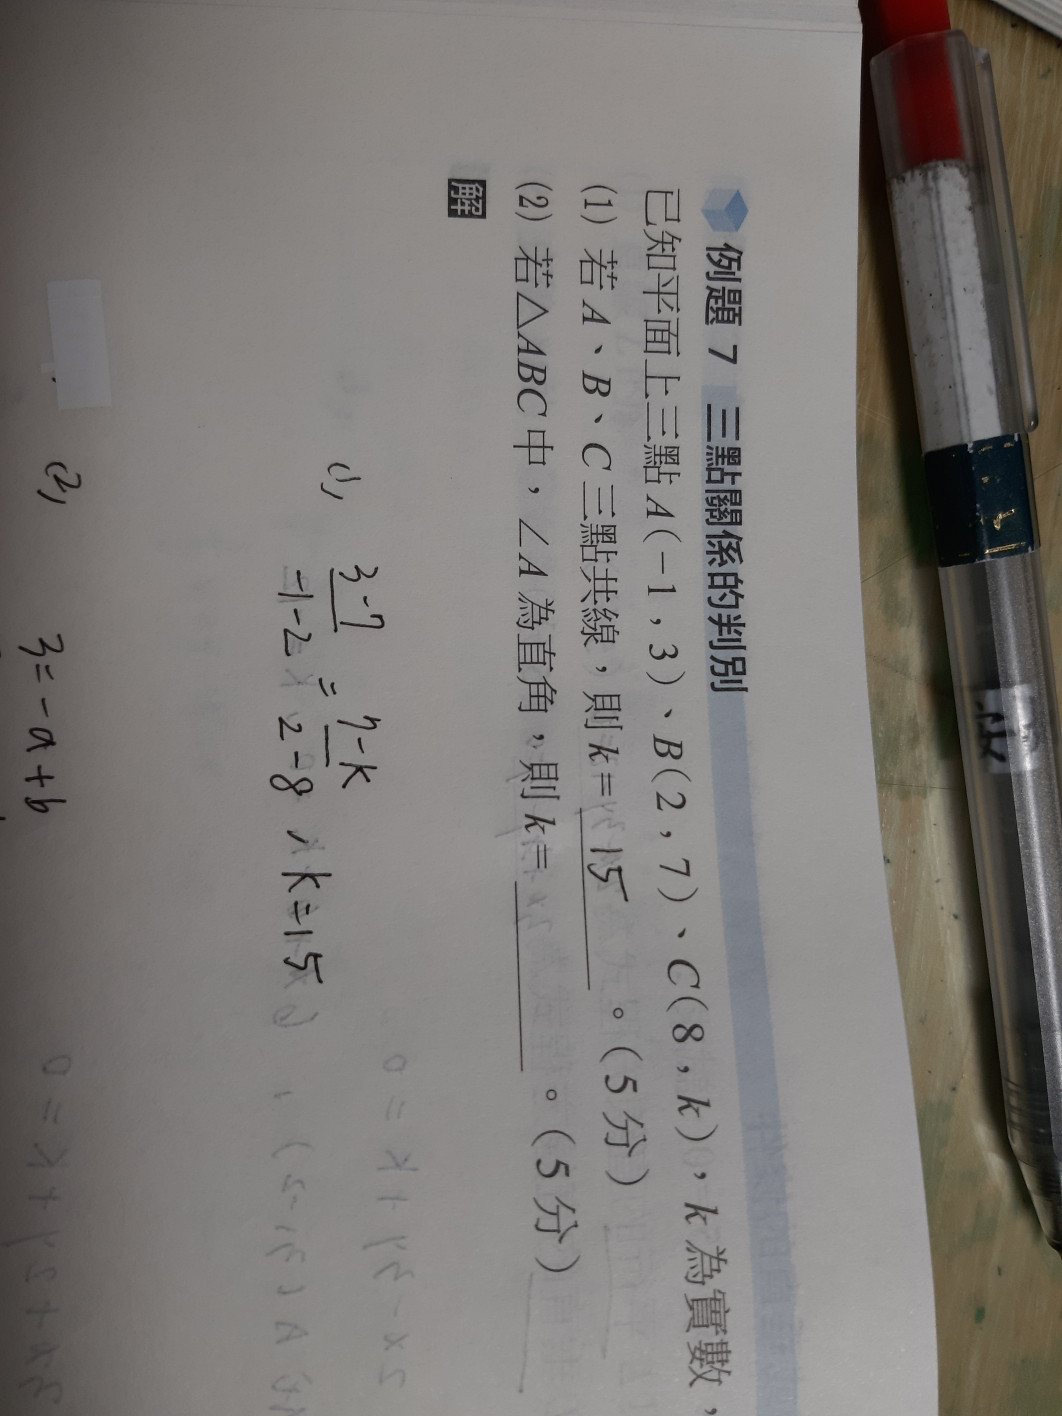 例題 7 三點關係的判別
已知平面上三點 A(-1,3)、B(2,7)、C(8,k),k 為實數,
(1) 若 A、B、C 三點共線,則 k= 15 。(5 分)
(2) 若△ABC 中,∠A 為直角,則 k= 。(5 分)
解
(1) 3-7/-1-2 = 7-k/2-8 , k=15
(2) 3=-a+b